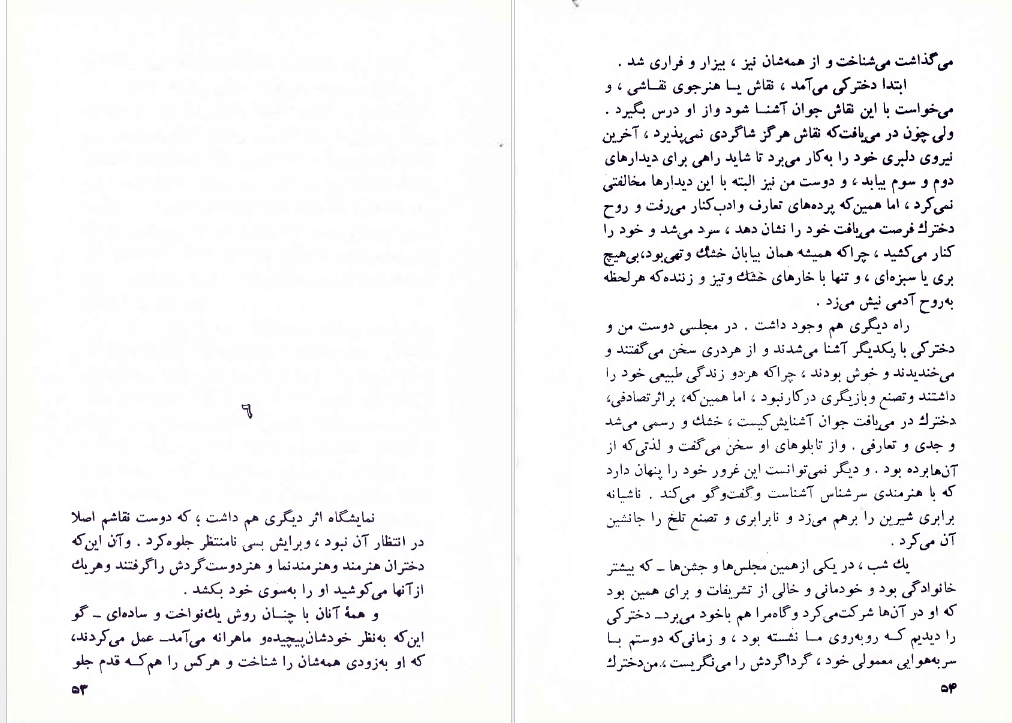 ۶
نمایشگاه اثر دیگری هم داشت ؛ که دوست نقاشم اصلا
در انتظار آن نبود ، وبرایش بسی نامنتظر جلوه‌کرد . وآن این‌که
دختران هنرمند وهنرمندنما و هنردوست‌گردش راگرفتند وهریك
ازآنها می‌کوشید او را به‌سوی خود بکشد .
و همهٔ آنان با چنـان روش یك‌نواخت و ساده‌ای ــ گو
این‌که به‌نظر خودشان‌پیچیده‌و ماهرانه می‌آمدــ عمل می‌کردند،
که او به‌زودی همه‌شان را شناخت و هرکس را هم‌کـه قدم جلو
۵۳
می‌گذاشت می‌شناخت و از همه‌شان نیز ، بیزار و فراری شد .
ابتدا دخترکی می‌آمد ، نقاش یـا هنرجوی نقـاشی ، و
می‌خواست با این نقاش جوان آشنـا شود واز او درس بگیرد .
ولی چون در می‌یافت‌که نقاش هرگز شاگردی نمی‌پذیرد ، آخرین
نیروی دلبری خود را به‌کار می‌برد تا شاید راهی برای دیدارهای
دوم و سوم بیابد ، و دوست من نیز البته با این دیدارها مخالفتی
نمی‌کرد ، اما همین‌که پرده‌های تعارف وادب‌کنار می‌رفت و روح
دخترك فرصت می‌یافت خود را نشان دهد ، سرد می‌شد و خود را
کنار می‌کشید ، چراکه همیشه همان بیابان خشك وتهی‌بود،بی‌هیچ
بری یا سبزه‌ای ، و تنها با خارهای خشك وتیز و زننده‌که هرلحظه
به‌روح آدمی نیش می‌زد .
راه دیگری هم وجود داشت . در مجلسی دوست من و
دخترکی با یکدیگر آشنا می‌شدند و از هردری سخن می‌گفتند و
می‌خندیدند و خوش بودند ، چراکه هردو زندگی طبیعی خود را
داشتند وتصنع وبازیگری درکارنبود ، اما همین‌که، براثرتصادفی،
دخترك در می‌یافت جوان آشنایش‌کیست ، خشك و رسمی می‌شد
و جدی و تعارفی . واز تابلوهای او سخن می‌گفت و لذتی‌که از
آن‌هابرده بود . و دیگر نمی‌توانست این غرور خود را پنهان دارد
که با هنرمندی سرشناس آشناست وگفت‌وگو می‌کند . ناشیانه
برابری شیرین را برهم می‌زد و نابرابری و تصنع تلخ را جانشین
آن می‌کرد .
یك شب ، در یکی ازهمین مجلس‌ها و جشن‌ها ــ که بیشتر
خانوادگی بود و خودمانی و خالی از تشریفات و برای همین بود
که او در آن‌ها شرکت‌می‌کرد وگاه‌مرا هم باخود می‌بردــ دخترکی
را دیدیم کـه روبه‌روی مـا نشسته بود ، و زمانی‌که دوستم بـا
سربه‌هوایی معمولی خود ، گرداگردش را می‌نگریست ، من‌دخترك
۵۴